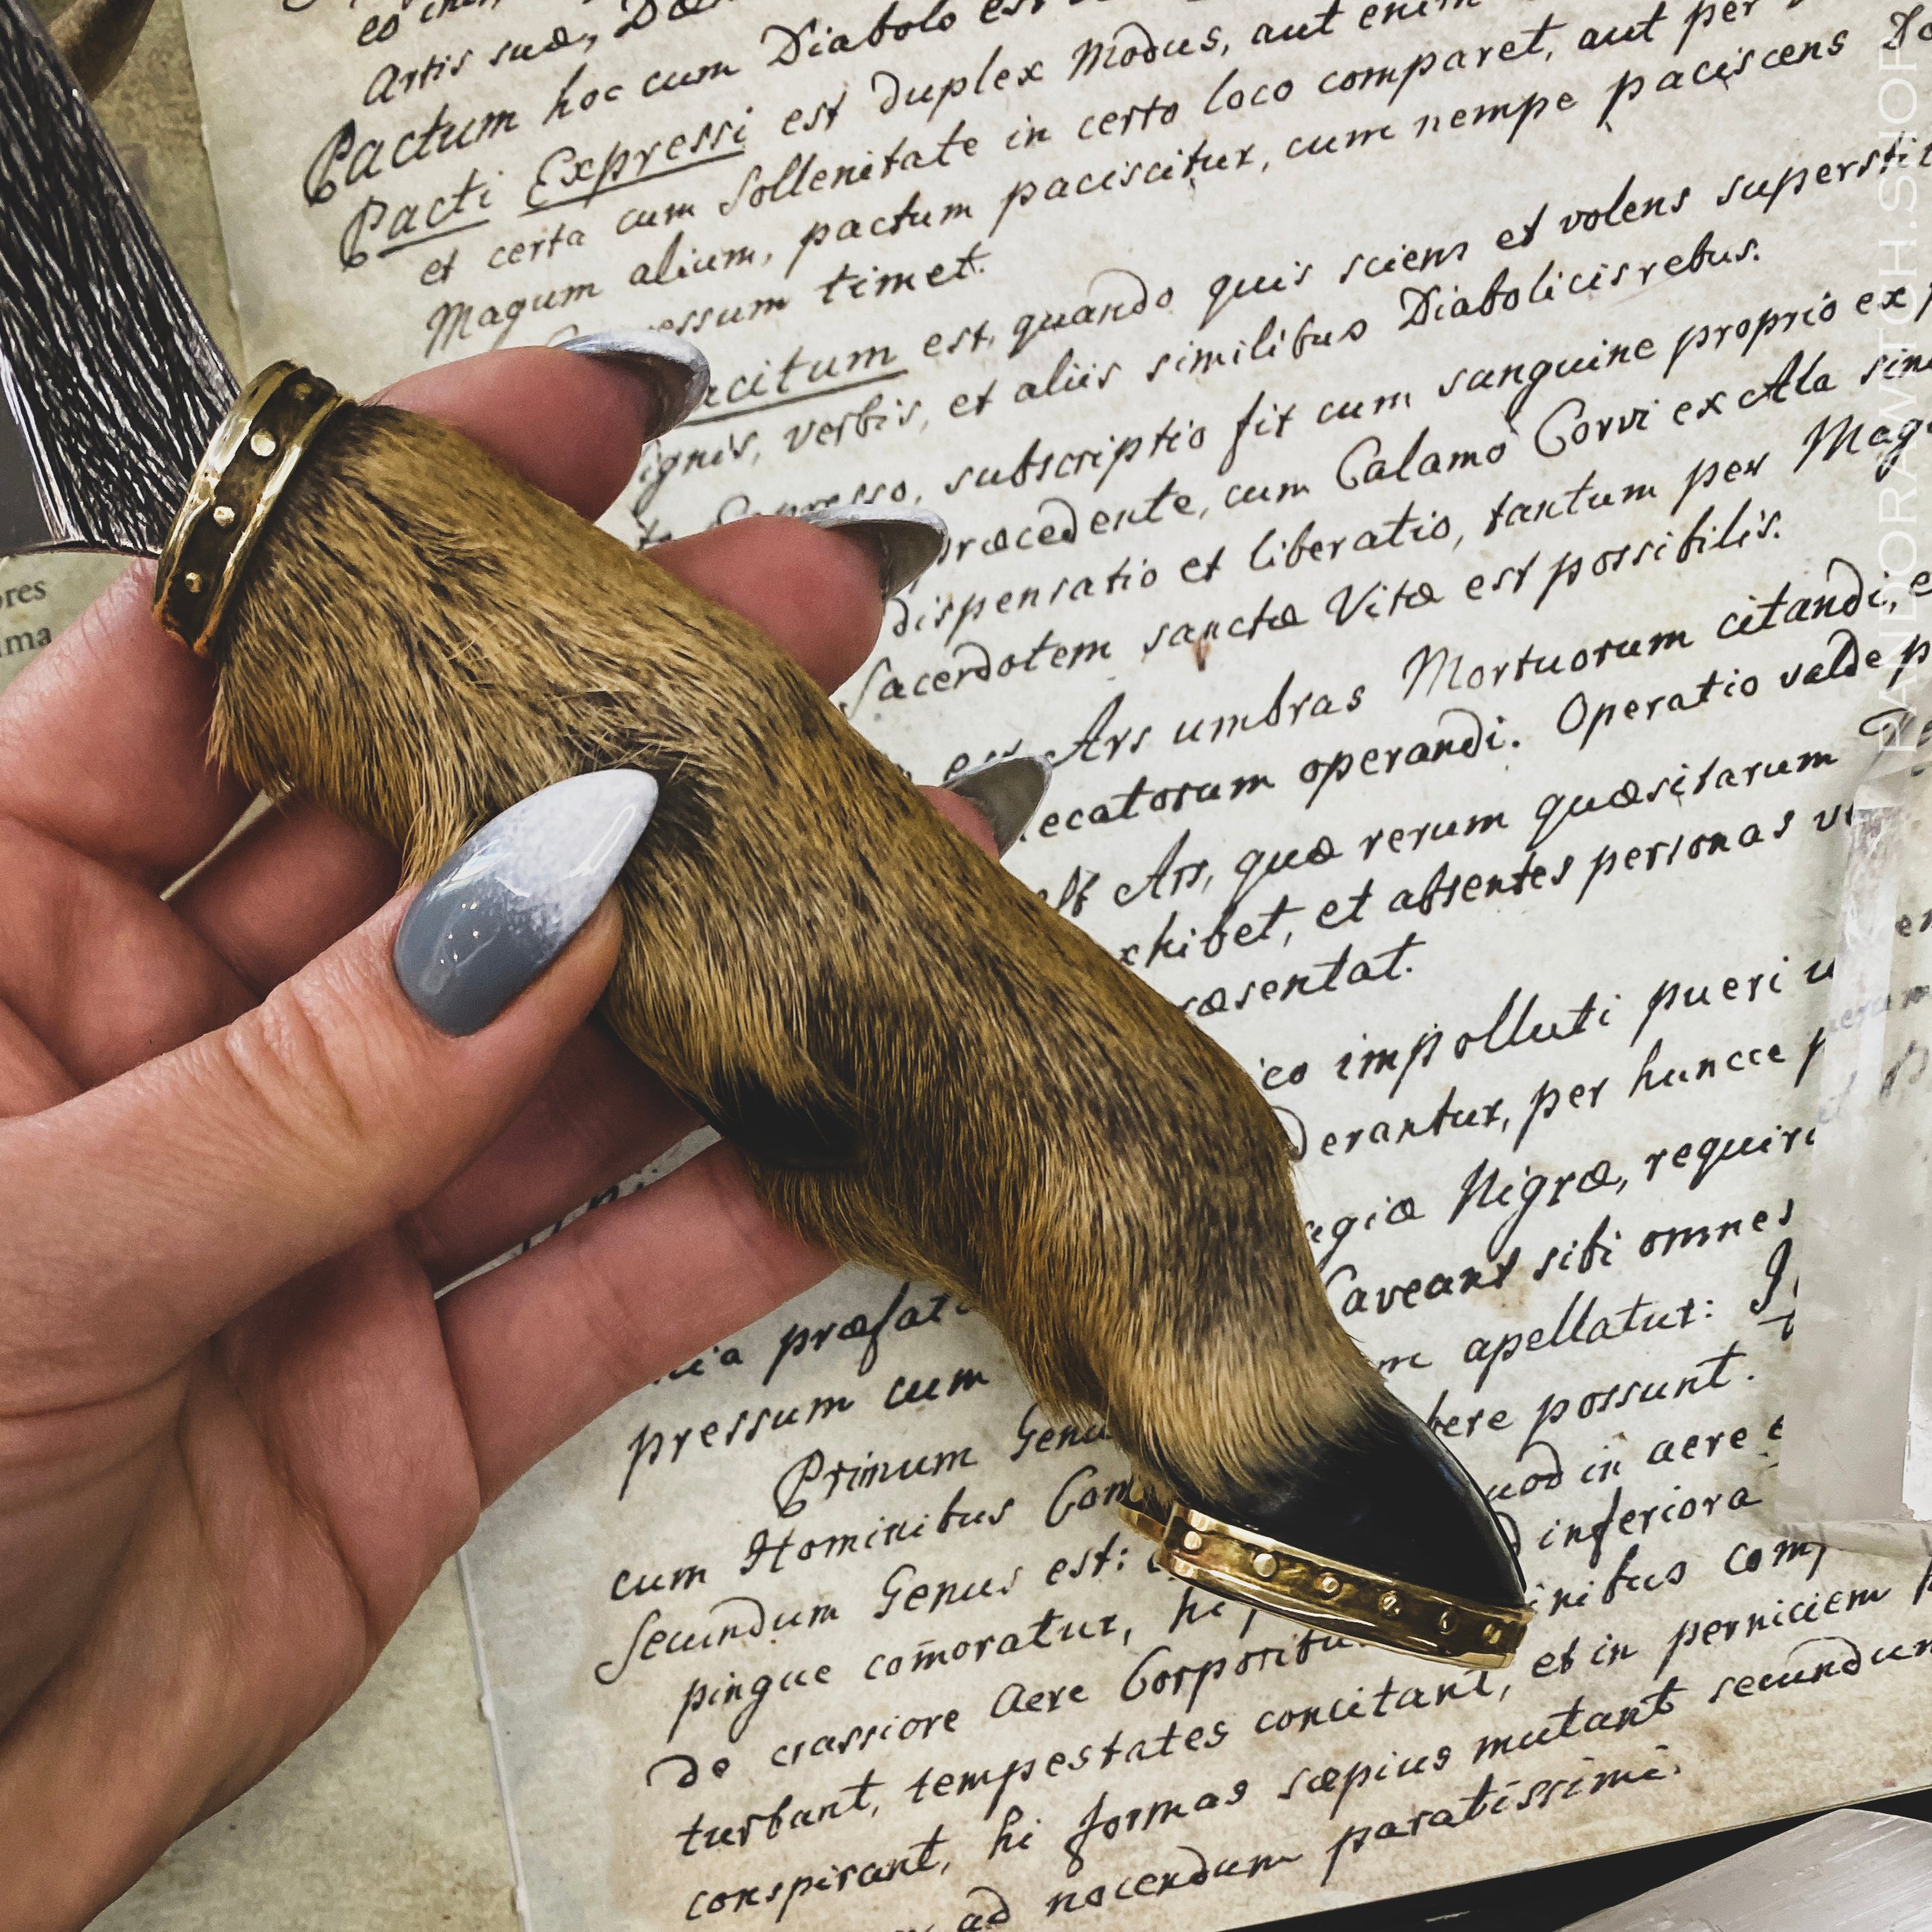 Artis suæ, Dæ
Pactum hoc cum Diabolo est
Pacti Expressi est duplex Modus, aut enim
et certa cum Sollenitate in certo loco comparet, aut per
Magum alium, pactum paciscitur, cum nempe paciscens
essum timet.
acitum est, quando quis sciens et volens superstit
ignis, verbis, et aliis similibus Diabolicis rebus.
presso, subscriptio fit cum sanguine proprio ex
præcedente, cum Calamo Corvi ex Ala sini
dispensatio et liberatio, tantum per Mag
Sacerdotem sanctæ Vitæ est possibilis.
est Ars umbras Mortuorum citandi, e
ecatorum operandi. Operatio valde p
est Ars, quæ rerum quæsitarum
xhibet, et absentes personas v
ræsentat.
ico impolluti pueri
derantur, per huncce p
agiæ Nigræ, requiri
Caveant sibi omnes
ia præfat
m apellatur:
pressum cum
bere possunt.
Primum Genu
uod in aere e
cum Hominibus Com
inferiora
Secundum Genus est:
inibus com
pingue comoratur, hi
et in perniciem
de crassiore Aere Corporibu
turbant, tempestates concitant,
conspirant, hi formas sæpius mutant secundum
ad nocendum paratissimi.
ores
ima
PANDORAWITCH.SHOP